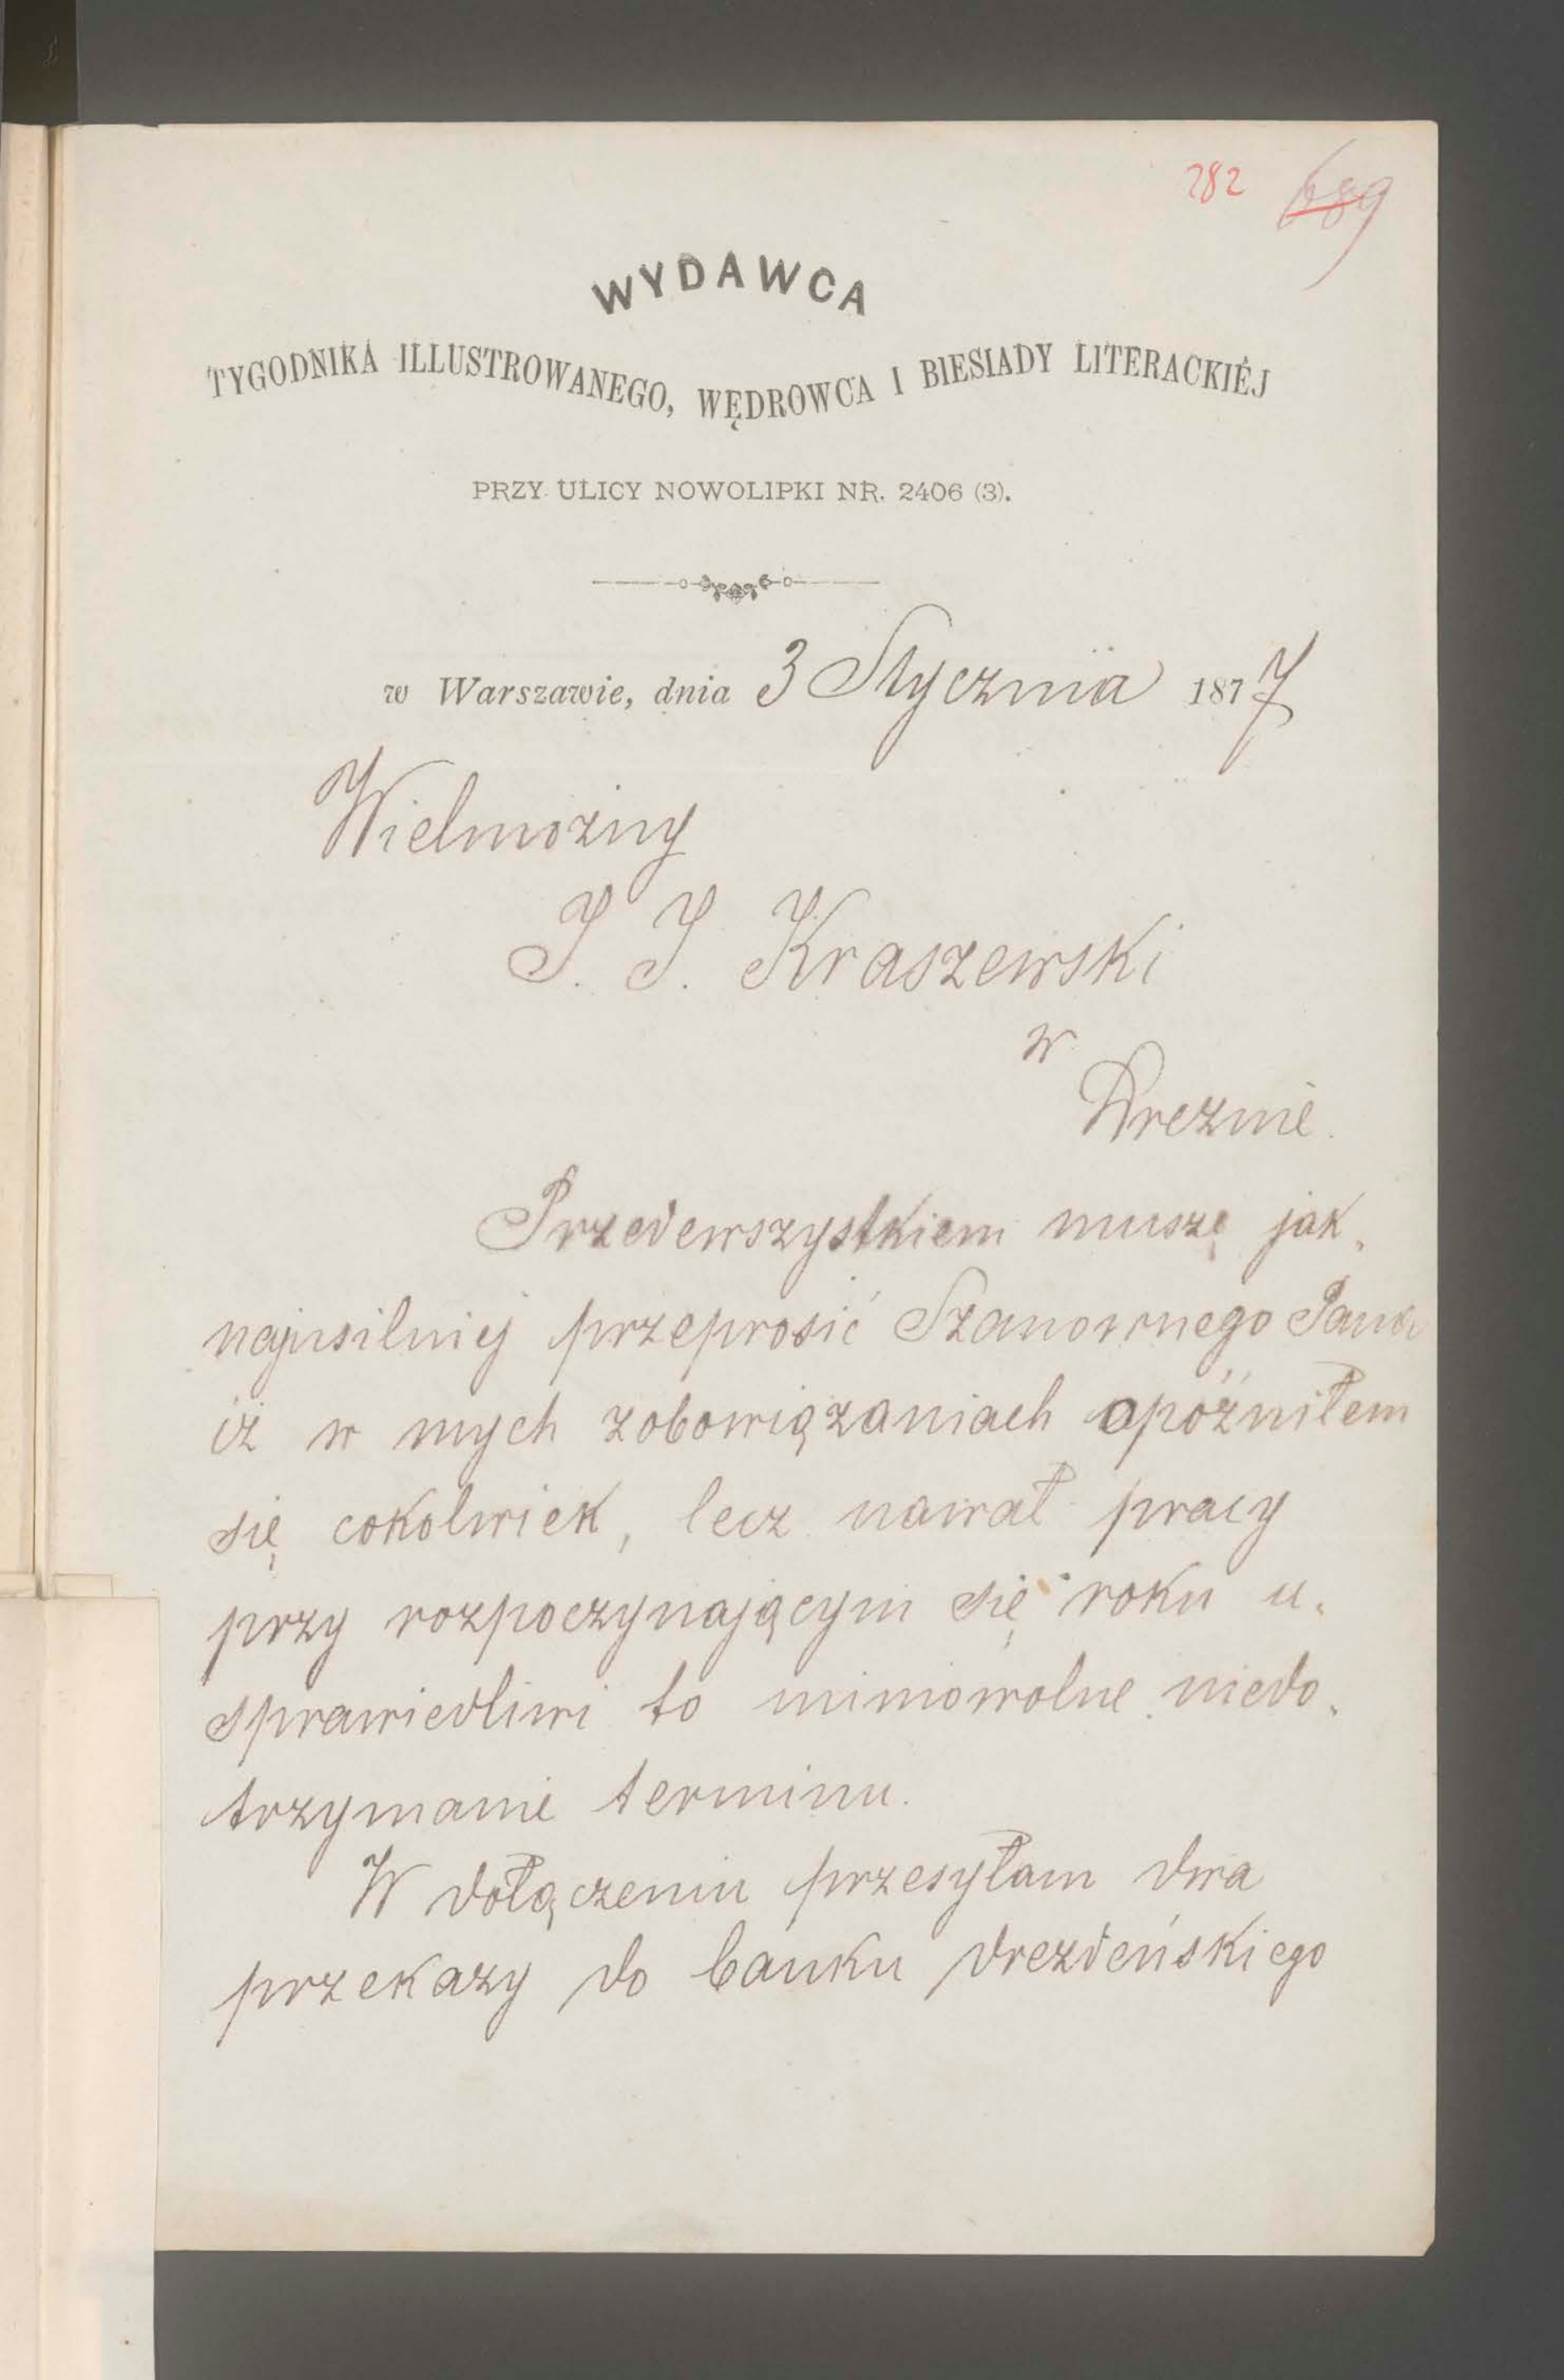 282 689
WYDAWCA
TYGODNIKA ILLUSTROWANEGO, WĘDROWCA I BIESIADY LITERACKIÉJ
PRZY ULICY NOWOLIPKI NR. 2406 (3).
w Warszawie, dnia 3 Stycznia 1877
Wielmożny
J. J. Kraszewski
w
Dreznie.
Przedewszystkiem muszę jak-
najusilniej przeprosić Szanownego Pana
iż w mych zobowiązaniach opóźniłem
się cokolwiek, lecz nawał pracy
przy rozpoczynającym się roku u-
sprawiedliwi to mimowolne niedo-
trzymanie terminu.
W dołączeniu przesyłam dwa
przekazy do banku drezdeńskiego